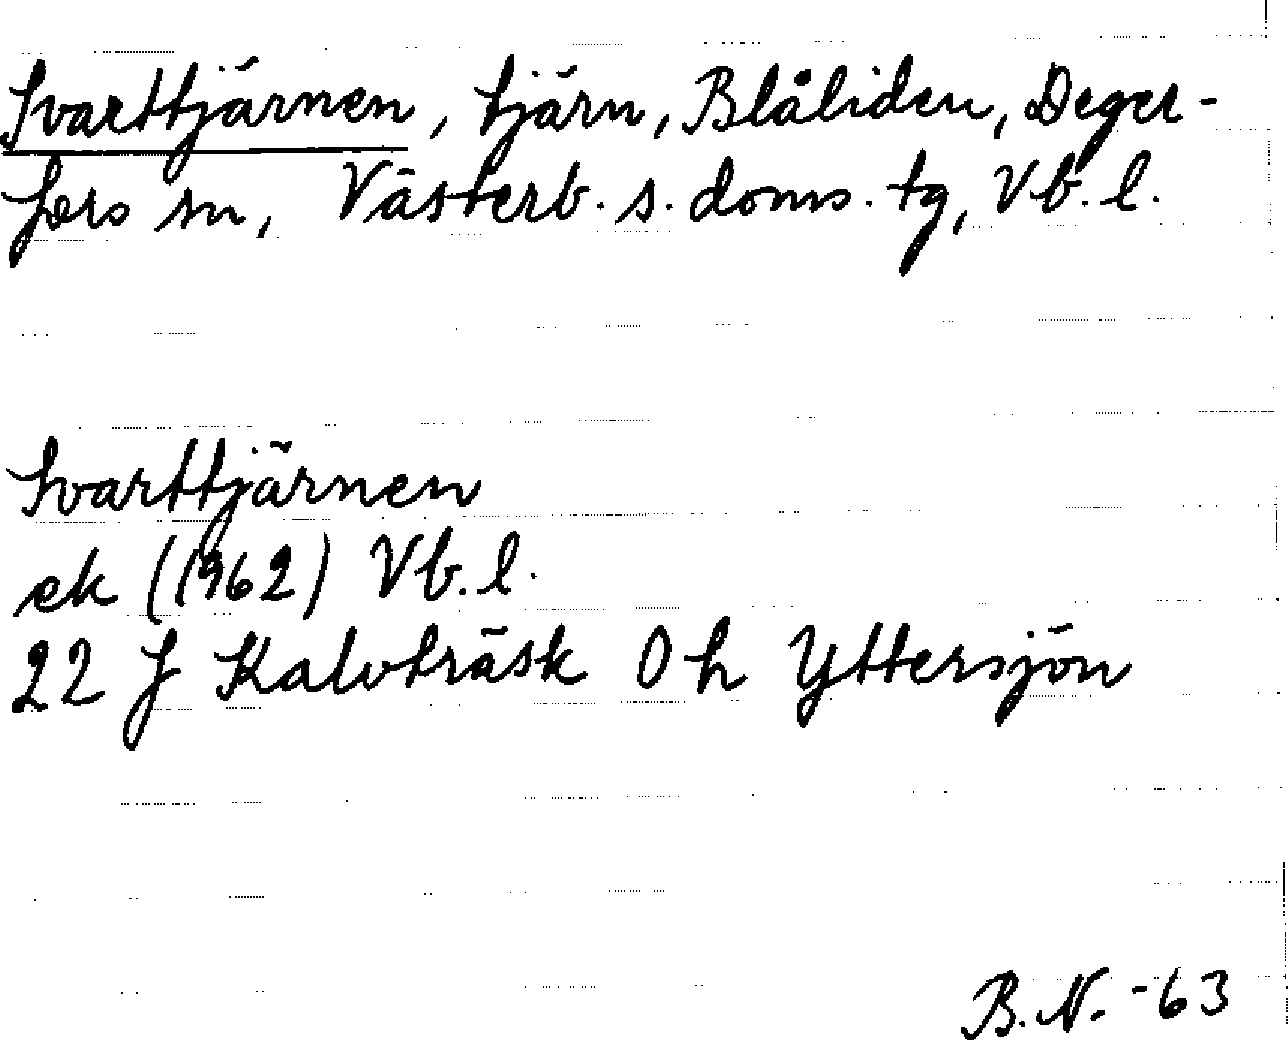 Svarttjärnen, tjärn, Blåliden, Deger-
fors sn, Västerb. s. doms. tg, Vb. l.
Svarttjärnen
ek (1962) Vb. l.
22 J Kalvträsk 0 h Yttersjön
B. N. -63